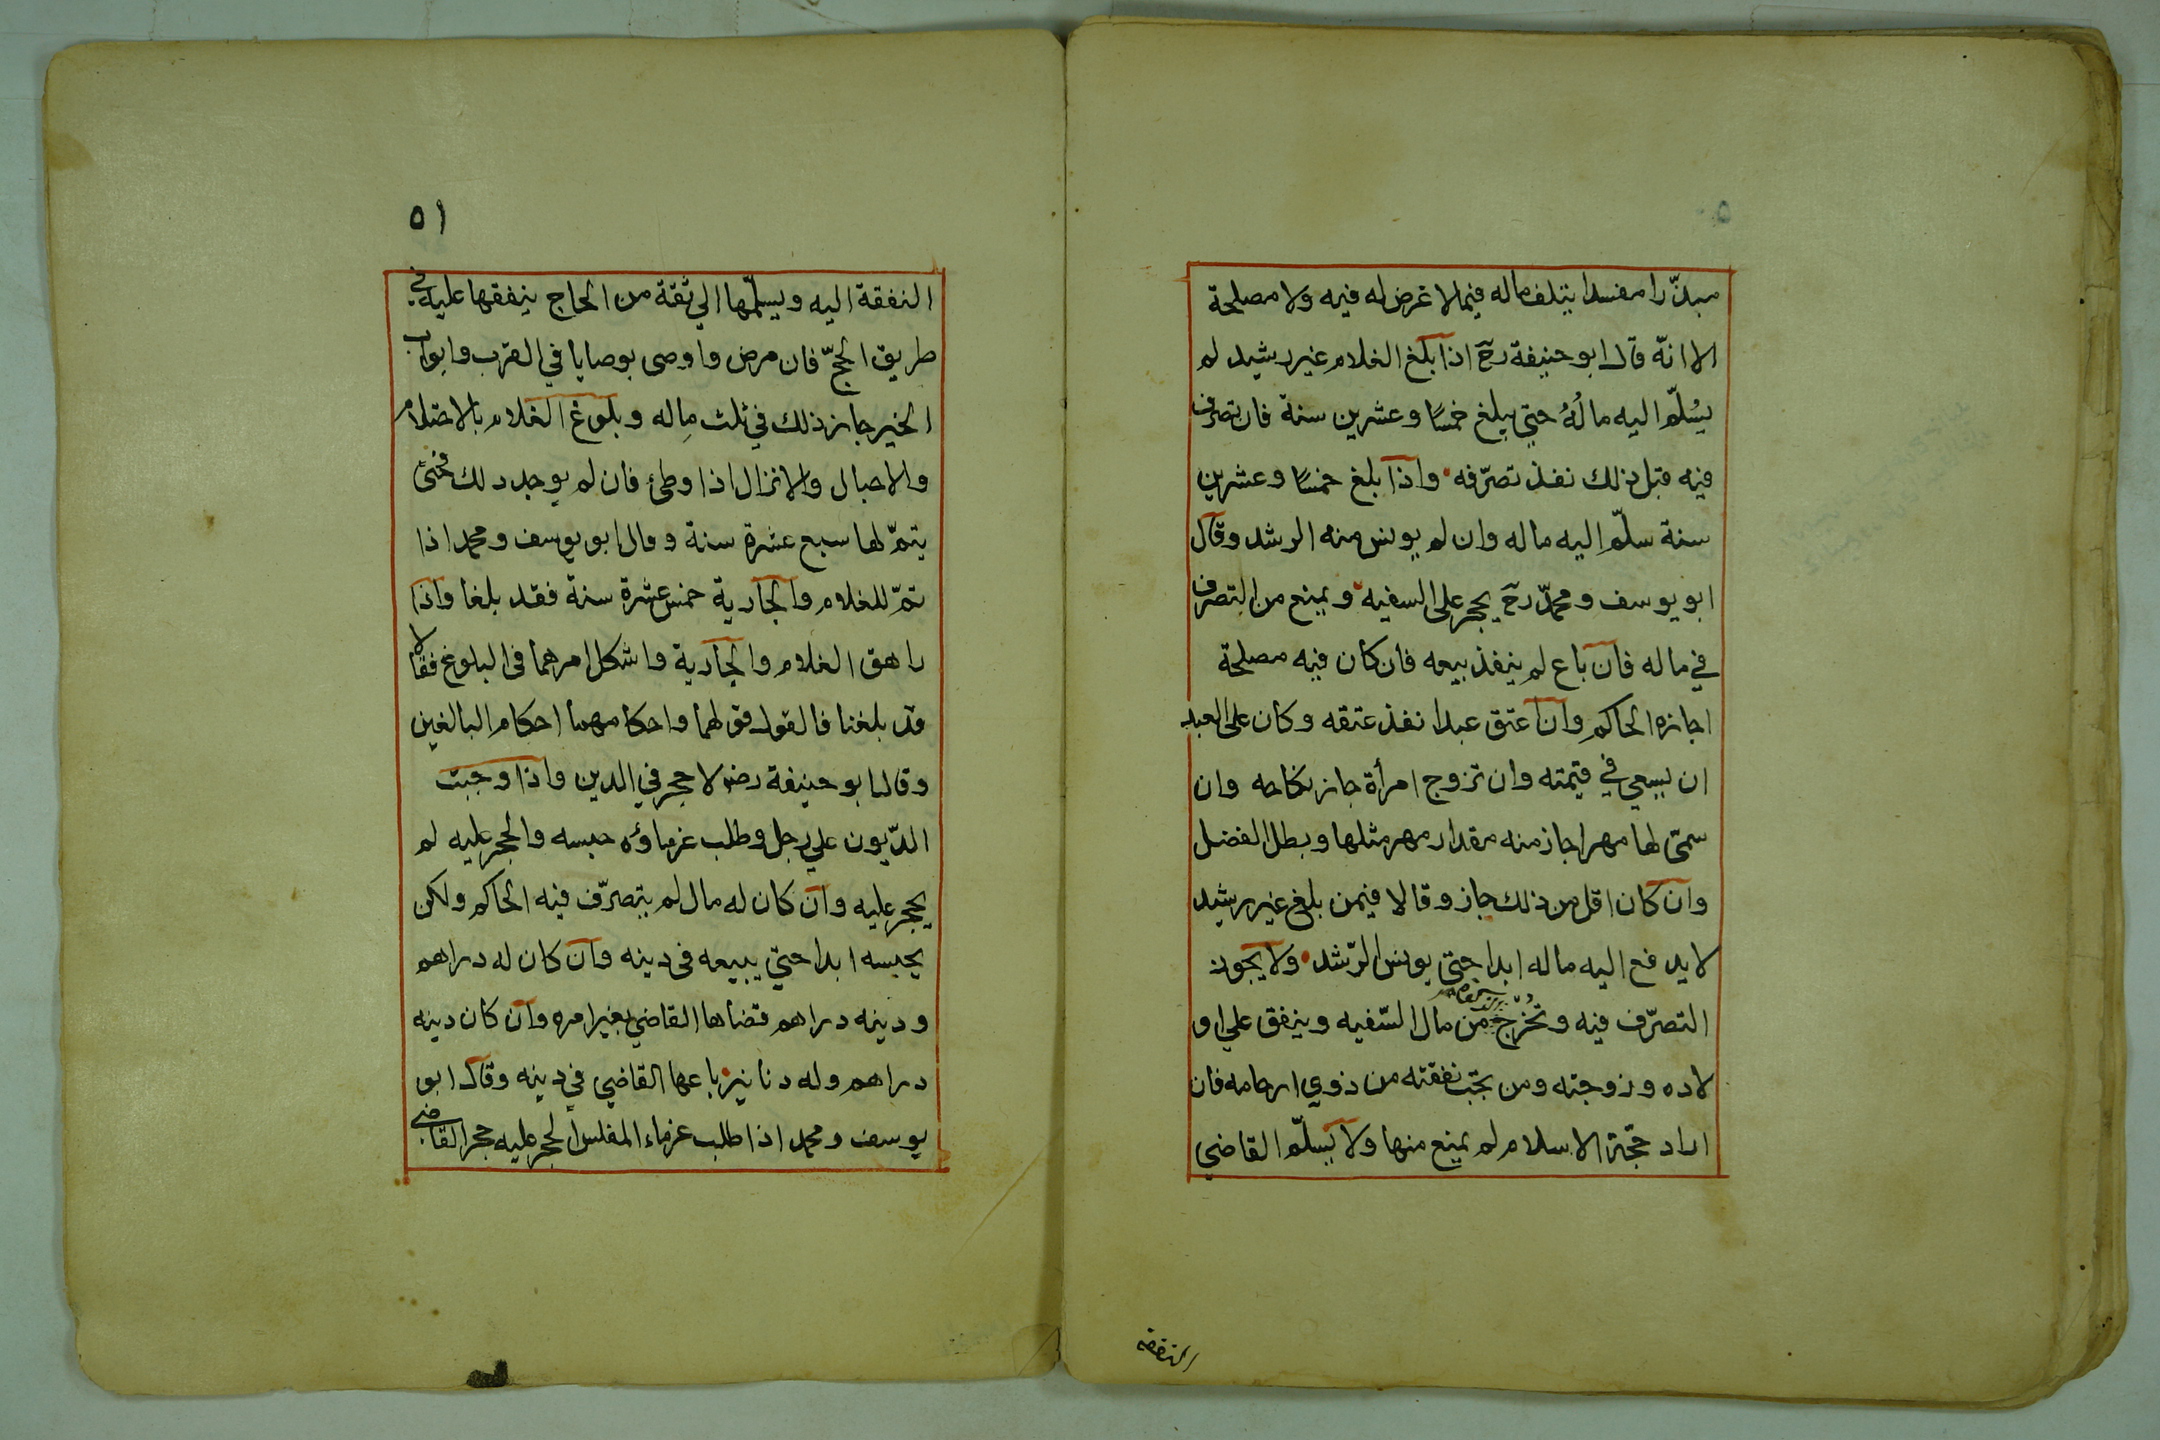 ٥٠
مبذّرا مفسدا يتلف ماله فيما لا غرض له فيه ولا مصلحة
الا انّه قال ابو حنيفة رح اذا بلغ الغلام غير رشيد لم
يسُلّم اليه مالُهُ حتي يبلغ خمسًا وعشرين سنة فان تصرف
فيه قبل ذلك نفذ تصرّفه واذا بلغ خمسًا وعشرين
سنة سلّم اليه ماله وان لم يونس منه الرشد وقال
ابو يوسف ومحمّد رح يحجر على السفيه ويمنع من التصرف
في ماله فان باع لم ينفذ بيعه فان كان فيه مصلحة
اجازه الحاكم وان اعتق عبدا نفذ عتقه وكان على العبد
ان يسعي في قيمته وان تزوج امرأة جاز نكاحه وان
سمّى لها مهرا جاز منه مقدار مهر مثلها وبطل الفضل
وان كان اقل من ذلك جاز وقالا فيمن بلغ غير رشيد
لا يدفع اليه ماله ابدا حتى يونس الرّشد ولا يجوز
التصرّف فيه وتُخرَج من مال السّفيه وينفق علي او
لاده وزوجته ومن تجب نفقته من ذوي ارحامه فان
اراد حجّة الاسلام لم يمنع منها ولا يسلّم القاضي
النفقة
٥١
النفقة اليه ويسلّمها الي ثقة من الحاج ينفقها عليه في
طريق الحجّ فان مرض واوصى بوصايا في القرب وابواب
الخير جاز ذلك في ثلث ماله وبلوغ الغلام بالاحتلام
والاحبال والانزال اذا وطئ فان لم يوجد ذلك فحتى
يتمّ لها سبع عشرة سنة وقال ابو يوسف ومحمد اذا
تمّ للغلام والجارية خمس عشرة سنة فقد بلغا واذا
راهق الغلام والجارية واشكل امرهما في البلوغ فقالا
قد بلغنا فالقول قولهما واحكامهما احكام البالغين
وقال ابو حنيفة رض لا حجر في الدين واذا وجبت
الدّيون علي رجل وطلب غرماؤه حبسه والحجر عليه لم
يحجر عليه وان كان له مال لم يتصرّف فيه الحاكم ولكن
يحبسه ابدا حتي يبيعه في دينه وان كان له دراهم
ودينه دراهم قضاها القاضي بغير امره وان كان دينه
دراهم وله دنانير باعها القاضي في دينه وقال ابو
يوسف ومحمد اذا طلب غرماء المفلس الحجر عليه حجر القاضي